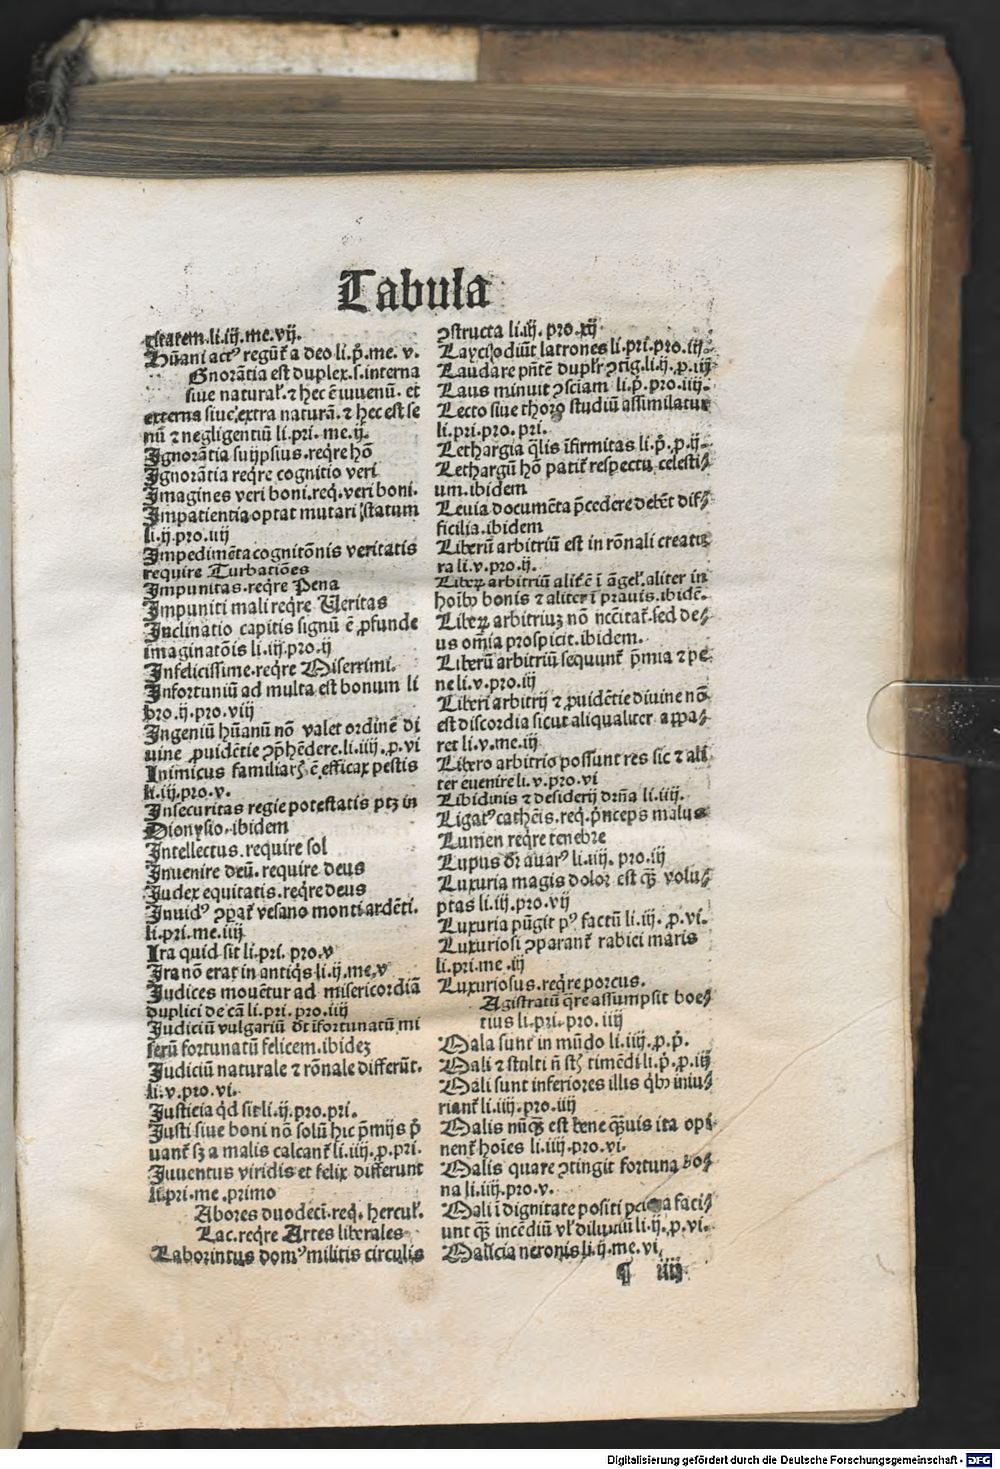 Tabula
ritatem.li.iij.me.vij.
Hūani actꝰ regūt᷑ a deo li.p̄.me. v.
Gnorātia est duplex.s.interna
siue natural᷑.⁊ hec ē iuuenū. et
externa siue extra naturā.⁊ hec est se
nū ⁊ negligentiū li.pri. me.ij.
Ignorātia suijpsius.reqͥre hō
Ignorātia reqͥre cognitio veri
Imagines veri boni.req̄.veri boni.
Impatientia optat mutari statum
li.ij.pro.iiij
Impedimēta cognitōnis veritatis
require Turbatiōes
Impunitas.reqͥre Pena
Impuniti mali reqͥre Veritas
Inclinatio capitis signū ē ꝓfunde
imaginatōis li.iij.pro.ij
Infelicissime.reqͥre Miserrimi.
Infortuniū ad multa est bonum li
bro.ij.pro.viij
Ingeniū hūanū nō valet ordinē di
uine ꝓuidētie ↄp̄hēdere.li.iiij.ꝓ.vi
Inimicus familiarꝭ ē efficax pestis
li.iij.pro.v.
Insecuritas regie potestatis ptꝫ in
Dionysio.ibidem
Intellectus.require sol
Inuenire deū. require deus
Iudex equitatis.reqͥre deus
Inuidꝰ ↄpat᷑ vesano monti ardēti.
li.pri.me.iiij
Ira quid sit li.pri. pro.v
Ira nō erat in antiqͥs li.ij.me.v
Iudices mouētur ad misericordiā
duplici de cā li.pri. pro.iiij
Iudiciū vulgariū dt̄ īfortunatū mi
serū fortunatū felicem.ibideꝫ
Iudiciū naturale ⁊ rōnale differūt.
li.v.pro.vi.
Iusticia qͥd sit li.ij.pro.pri.
Iusti siue boni nō solū hic p̄mijs p̄
uant᷑ sꝫ a malis calcant᷑ li.iiij.ꝓ.pri.
Iuuentus viridis et felix differunt
li.pri.me.primo
Abores duodecī.req̄. hercul᷑.
Lac.reqͥre Artes liberales
Laborintus domꝰ militis circulis
ↄstructa li.iij. pro.xij
Laycos diūt latrones li.pri.pro.iij.
Laudare pn̄tē duplr̄ ↄtīg.li.ij.ꝓ.iij
Laus minuit ↄsciam li.p̄.pro.iiij.
Lecto siue thoro studiū assimilatur
li.pri.pro.pri.
Lethargia qͣlis īfirmitas li.p̄.ꝓ.ij.
Lethargū hō patit᷑ respectu celesti⸗
um.ibidem
Leuia documēta p̄cedere debēt dif⸗
ficilia.ibidem
Liberū arbitriū est in rōnali creatu
ra li.v.pro.ij.
Liberꝝ arbitriū alit᷑ ē ī āgel᷑.aliter in
hoībꝰ bonis ⁊ aliter ī prauis.ibidē.
Liberꝝ arbitriuꝫ nō nc̄citat᷑.sed de⸗
us om̄ia prospicit.ibidem.
Liberū arbitriū sequunt᷑ p̄mia ⁊ pe
ne li.v.pro.iij
Liberi arbitrij ⁊ ꝓuidētie diuine nō
est discordia sicut aliqualiter appa⸗
ret li.v.me.iij
Libero arbitrio possunt res sic ⁊ ali
ter euenire li.v.pro.vi
Libidinis ⁊ desiderij dr̄na li.iiij.
Ligatꝰ cathēis.req̄.p̄nceps malus
Lumen reqͥre tenebre
Lupus dr̄ auarꝰ li.iiij. pro.iij
Luxuria magis dolor est qͣꝫ volu⸗
ptas li.iij.pro.vij
Luxuria pūgit pꝰ factū li.iij.ꝓ.vi.
Luxuriosi ↄparant᷑ rabici maris
li.pri.me.iij
Luxuriosus.reqͥre porcus.
Agistratū qͣre assumpsit boe⸗
tius li.pri.pro.iiij
Mala sunt in mūdo li.iiij.ꝓ.p̄.
Mali ⁊ stulti n̄ st̄ timēdi li.p̄.ꝓ.iij
Mali sunt inferiores illis qͥbꝰ iniu⸗
riant᷑ li.iiij.pro.iiij
Malis nūqͣꝫ est bene qͣꝫuis ita opi
nent᷑ hoīes li.iiij.pro.vi.
Malis quare ↄtingit fortuna bo⸗
na li.iiij.pro.v.
Mali ī dignitate positi faci⸗
unt qͣꝫ incēdiū vl᷑ diluuiū li.ij.ꝓ.vi.
Malicia neronis li.ij.me.vi.
¶ iiij
Digitalisierung gefördert durch die Deutsche Forschungsgemeinschaft - DFG